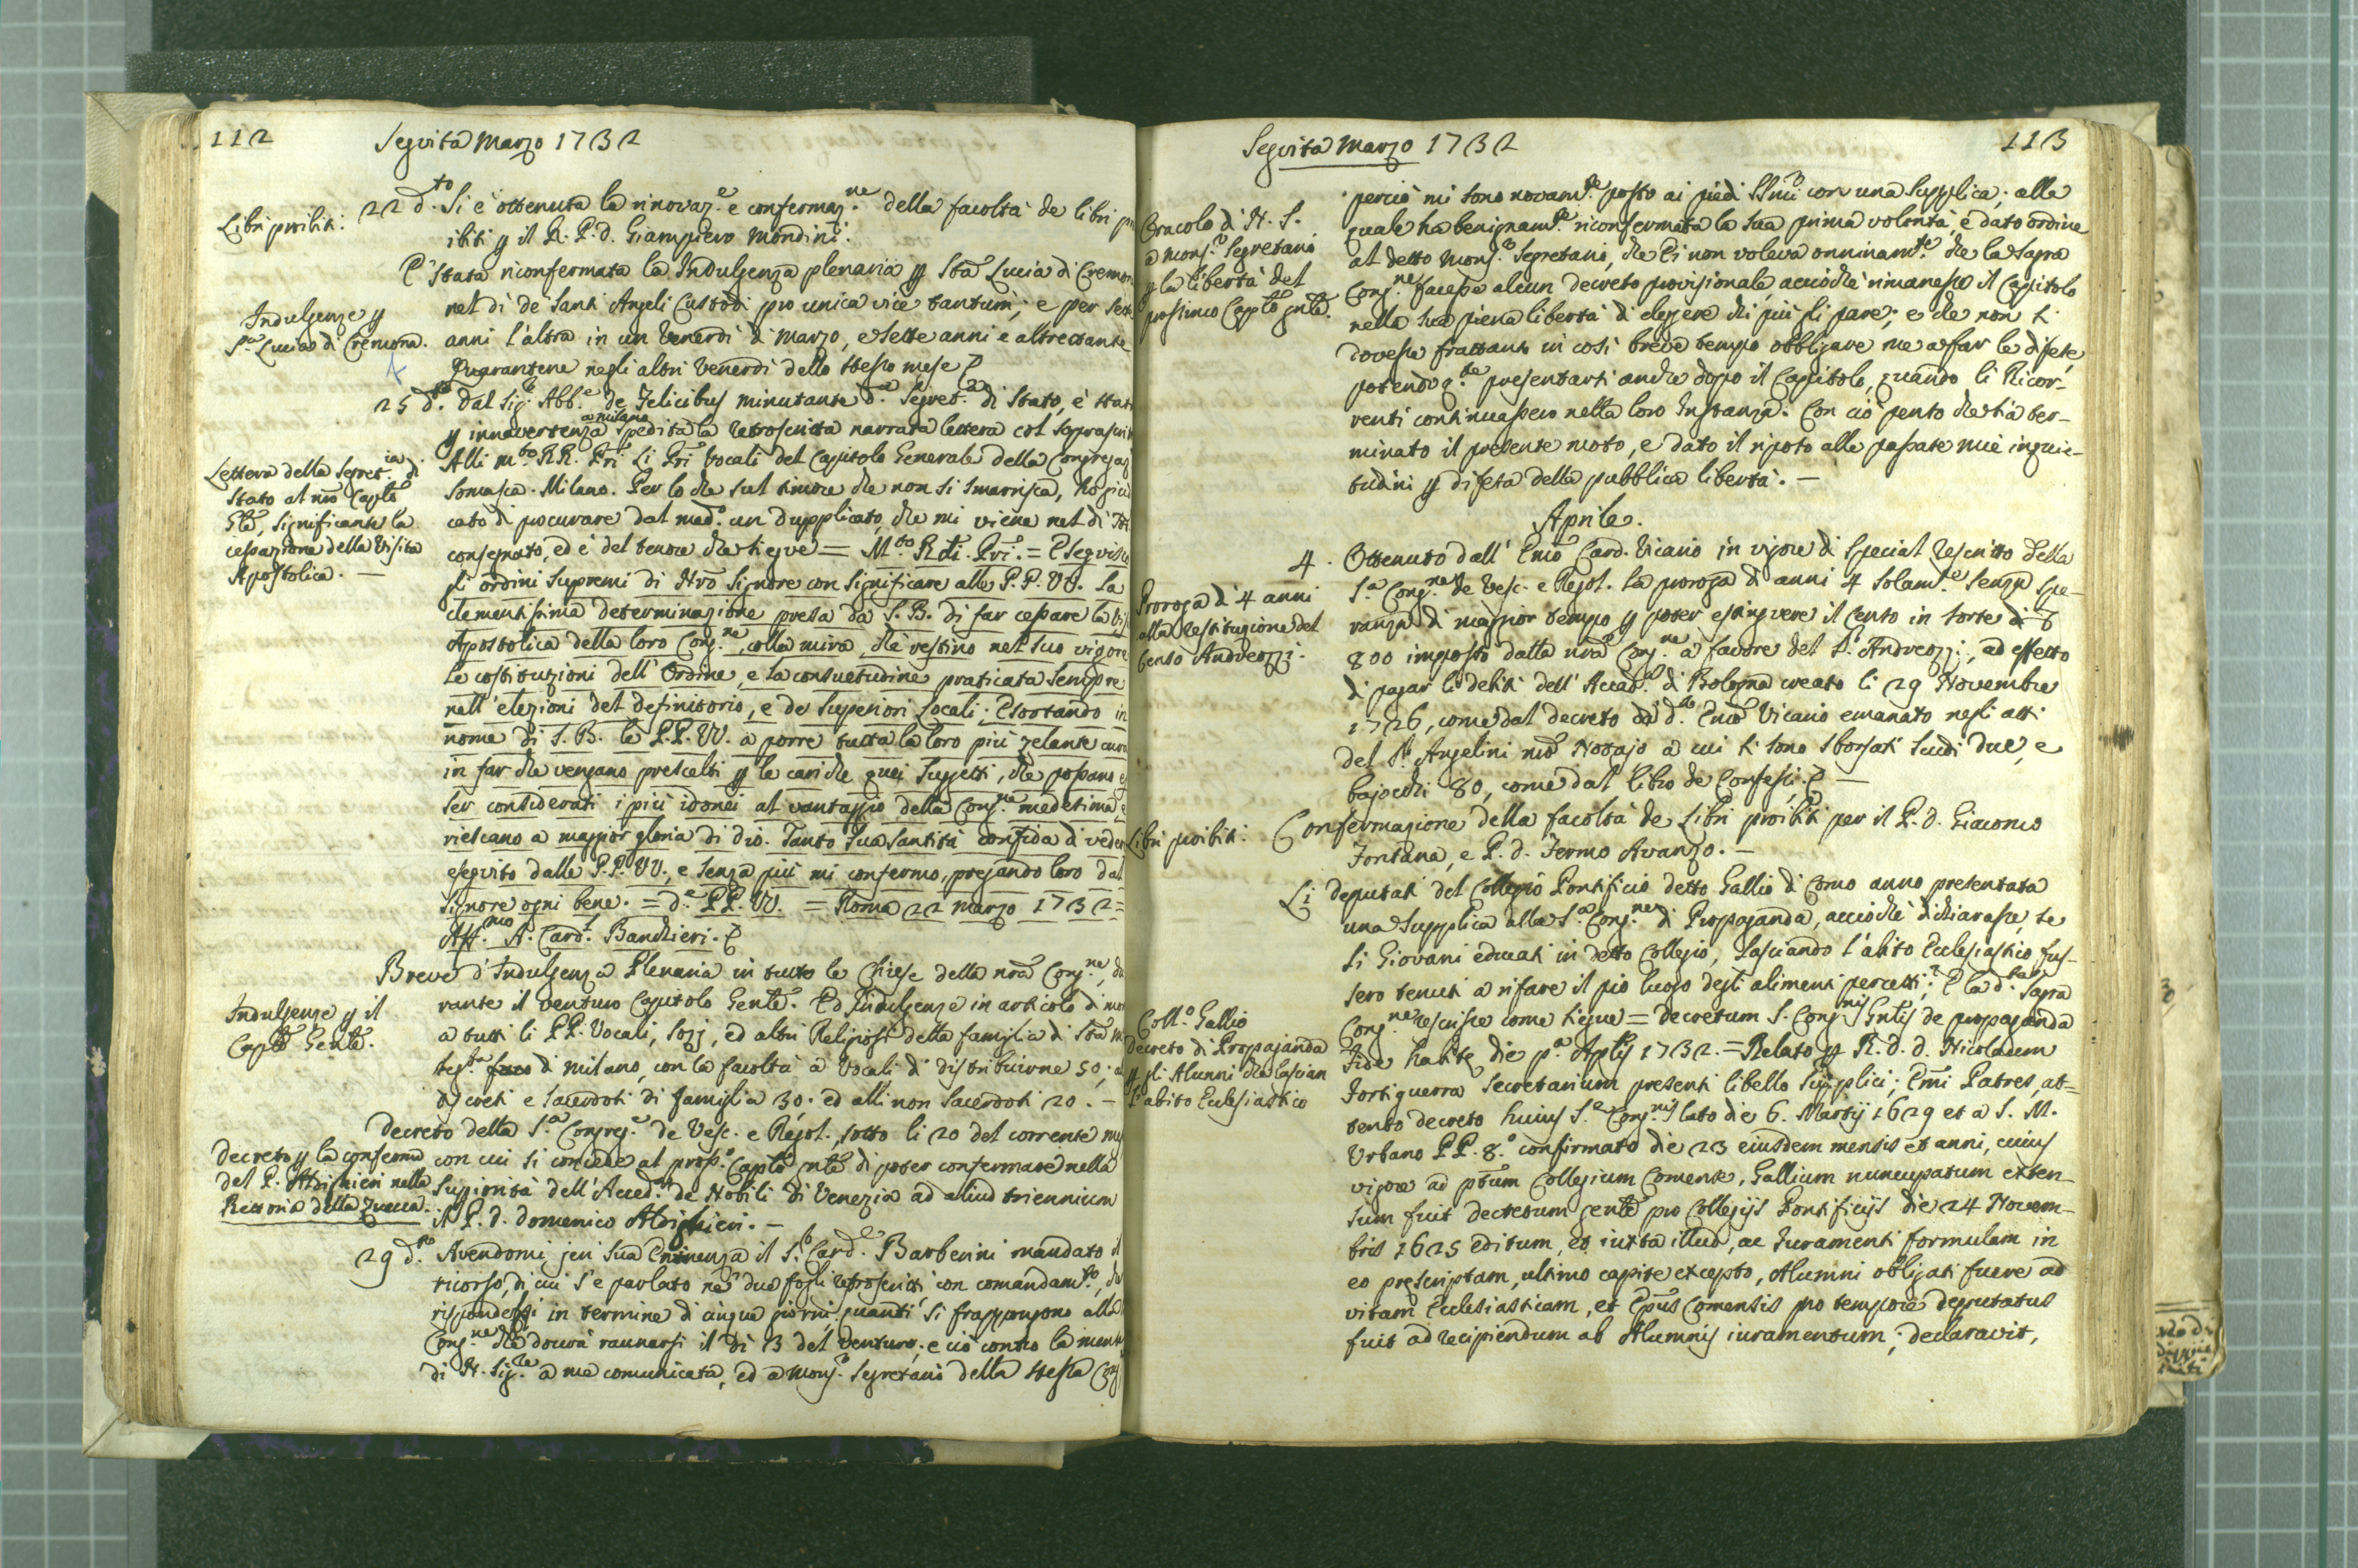 112
Seguita Marzo 1732
Libri proibiti.
22 d.to Si è ottenuta la rinovaz.e e confermaz.ne della facoltà de libri
ibiti p il R. P. d. Giampiero Mondini.
E' stata riconfermata la Indulgenza plenaria p Sta Lucia di Cremon
Indulgenze p
S.ta Lucia di Cremona.
nel dì de Santi Angeli Custodi pro unica vice tantum; e per sett
anni l'altra in un Venerdì di Marzo, e sette anni e altrettante
Quarantene negli altri Venerdì dello stesso mese
25 d.to Dal Sig.r Abb.e de Felicibus minutante d.a Segret.a di Stato, è stat
a milano
p innavertenza spedita la retroscritta narrata lettera col soprascrit
Lettera della Segret.ia di
Stato al nro Caplo
Gle, significante la
cessazione della Visita
Apostolica. —
Alli m.to RR. Pri Li Pri Vocali del Capitolo Generale della Congregaz
Somasca. Milano. Per lo che sul timore che non si smarrisca, ho giu
cato di procurare dal med.o un dupplicato, che mi viene nel dì
consegnato, ed è del tenore che siegue = M.to Rdi. Pri. = Eseguisco
gli ordini supremi di Nro Signore con significare alle P.P. VV. la
clementissima determinazione presa da S. B. di far cessare la Vis
Apostolica della loro Cong.ne, colla mira, che restino nel suo vigore
le costituzioni dell' Ordine, e la consuetudine praticata sempre
nell' elezioni del definitorio, e de Superiori Locali. Esortando in
nome di S. B. le P.P. VV. a porre tutta la loro più zelante cura
in far che vengano prescelti p le cariche quei Sugetti, che possano es
ser considerati i più idonei al vantaggio della Cong.ne medesima, e
riescano a maggior gloria di Dio. Tanto Sua Santità confida di veder
eseguito dalle P.P. VV., e senza più mi confermo, pregando loro dal
Signore ogni bene. = d.e PP. VV. = Roma 22 Marzo 1732 =
Aff.mo A. Card.l Banchieri.
Breve d'Indulgenza Plenaria in tutte le Chiese della nra Cong.ne, du
Indulgenze p il
Caplo Genle.
rante il venturo Capitolo Genle. Ed Indulgenze in articolo di mor
a tutti li PP. Vocali, Sozj, ed altri Religiosi della famiglia di Sta M
di Milano, con la facoltà a Vocali di distribuirne 50; a
discreti e Sacerdoti di famiglia 30. ed alli non Sacerdoti 20. —
Decreto della S.a Congreg.e de Vesc. e Regol., sotto li 20 del corrente me
Decreto p la conferma
del P. Aldighieri nella
Rettoria della Zuecca.
con cui si concede al pross.o Caplo gnle di poter confermare nella
Suppiorità dell'Accad.a de Nobili di Venezia ad aliud triennium
il P. d. Domenico Aldighieri. —
29 d.to Avendomi jeri Sua Eminenza il S.r Card.e Barberini mandato il
ricorso, di cui s'è parlato ne' due fogli retroscritti, con comandam.to, che
rispondessi in termine di cinque giorni, quanti si frappongono alla
Cong.ne che dovrà raunarsi il dì 3 del venturo; e ciò contro la mente
di N. Sig.re a me comunicata, ed a Mons.r Segretario della stessa Cong

Seguita Marzo 1732
113
Oracolo di N. S.
a Mons.r Segretario
p la libertà del
prossimo Caplo gnle.
perciò mi sono novam.te posto ai piedi SSmi con una Supplica; alla
quale ha benignam.te riconfermata la sua prima volontà, e dato ordine
al detto Mons.r Segretario, che Ei non voleva onninam.te che la Sagra
Cong.ne facesse alcun decreto provisionale, acciochè rimanesse il Capitolo
nella sua piena libertà di elegere chi più gli pare; e che non si
dovesse frattanto in così breve tempo obbligare me a far le difese,
potendo q.te presentarsi anche dopo il Capitolo, quando li Ricor-
renti continuassero nella loro Instanza. Con ciò penso che sia ter-
minato il presente moto, e dato il riposo alle passate mie inquie-
tudini p difesa della pubblica libertà. —
Aprile.
4. Ottenuto dall' Emo Card. Vicario in vigore di special rescritto della
Proroga di 4 anni
alla restituzione del
Censo Andreozzi.
S.a Cong.ne de Vesc. e Regol. la proroga di anni 4 solam.te senza spe-
ranza di maggior tempo p poter estinguere il Censo in sorte di
800 imposto dalla nra Cong.ne a favore del S.r Andreozzi, ad effetto
di pagar li debiti dell' Accad.a di Bologna creato li 29 Novembre
1726, come dal decreto di d.to Emo Vicario emanato negli atti
del S.r Angelini nro Notajo a cui si sono sborsati scudi due, e
bajocchi 80, come dal libro de Confessi. —
Libri proibiti.
Confermazione della facoltà de Libri proibiti per il P. d. Giacomo
Fontana, e P. d. Fermo Avanzo. —
Li deputati del Collegio Pontificio detto Gallio di Como anno presentata
una Supplica alla S.a Cong.ne di Propaganda, acciochè dichiarasse, se
li Giovani educati in detto Collegio, lasciando l'abito Ecclesiastico fus-
sero tenuti a rifare il pio luogo degli alimenti percetti; E la d.ta Sagra
Coll.o Gallio
decreto di Propaganda
p gli Alunni che lascian
l'abito Ecclesiastico
Cong.ne rescrisse come siegue = Decretum S. Cong.nis Gnlis de propaganda
Fide habite die p.a Aplis 1732. = Relato p R. d. d. Nicolaum
Fortiguerra Secretarium presenti libello supplici; Emi Patres, at-
tento decreto huius S.e Cong.nis lato die 6. Martij 1629 et a S. M.
Urbano PP. 8.o confirmato die 23 eiusdem mensis et anni, cuius
vigore ad ptum Collegium Comense, Gallium nuncupatum exten-
sum fuit decretum gente pro Collegijs Pontificijs die 24 Novem-
bris 1625 editum, et iuxta illud, ac Iuramenti formulam in
eo prescriptam, ultimo capite excepto, Alumni obligati fuere ad
vitam Ecclesiasticam, et Epus Comensis pro tempore deputatus
fuit ad recipiendum ab Alumnis iuramentum; declaravit,